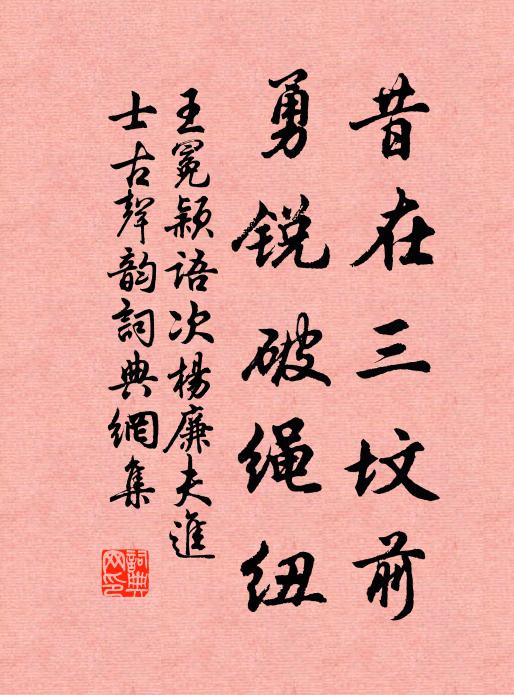 昔在三坟前
勇锐破绳纽
王冕颖语次杨廉夫进
士古声韵词典网集
词典网印